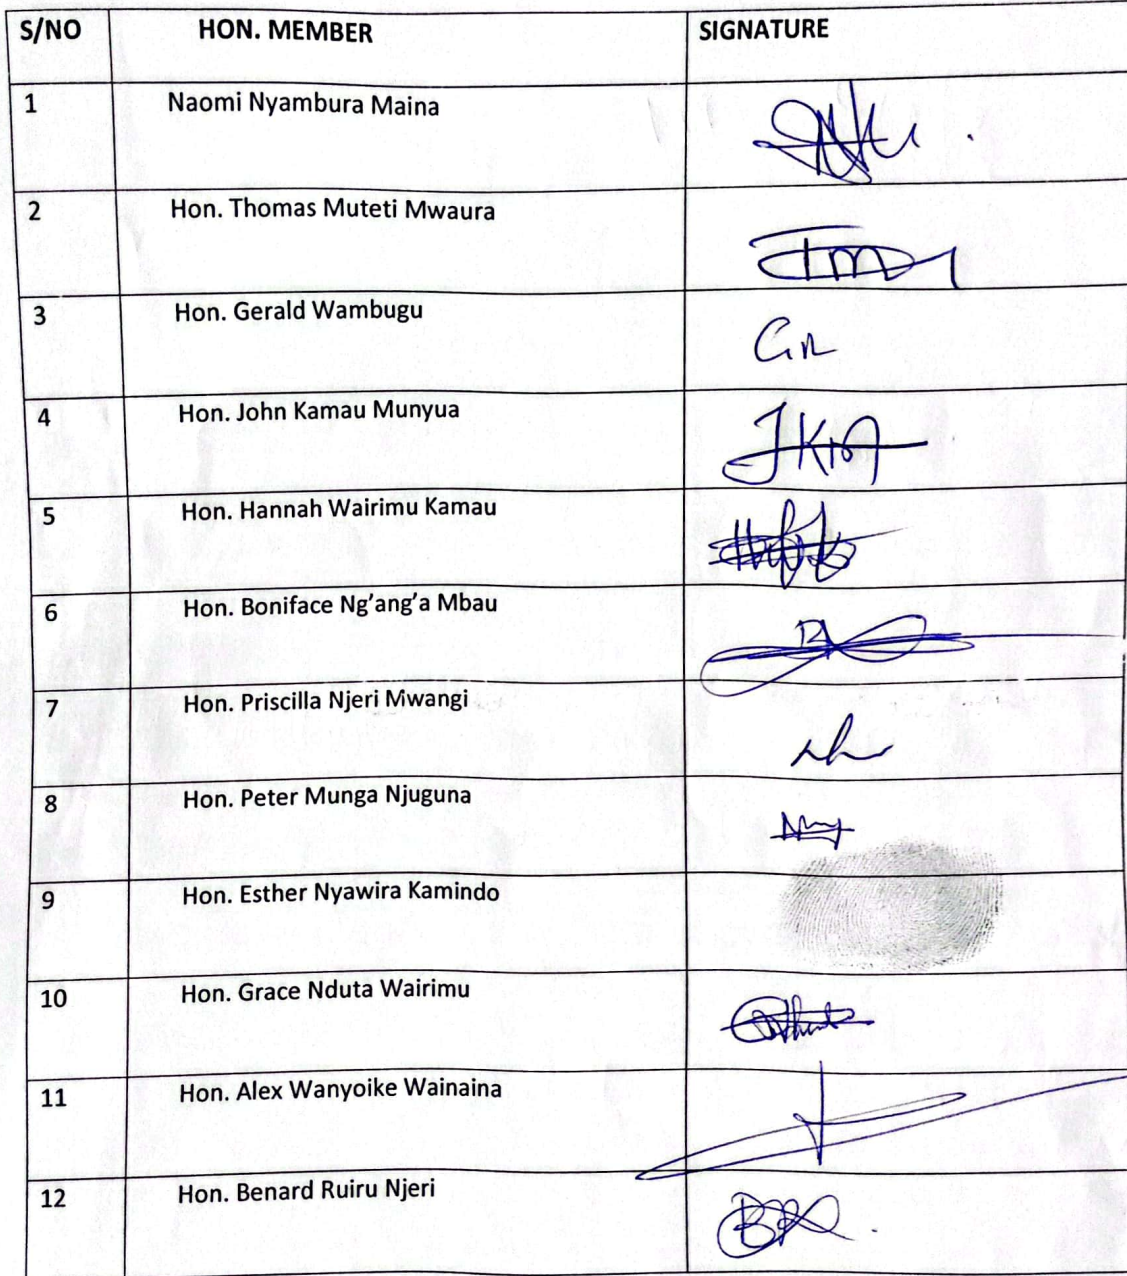 S/NO HON. MEMBER SIGNATURE
1 Naomi Nyambura Maina
2 Hon. Thomas Muteti Mwaura
3 Hon. Gerald Wambugu
4 Hon. John Kamau Munyua
5 Hon. Hannah Wairimu Kamau
6 Hon. Boniface Ng'ang'a Mbau
7 Hon. Priscilla Njeri Mwangi
8 Hon. Peter Munga Njuguna
9 Hon. Esther Nyawira Kamindo
10 Hon. Grace Nduta Wairimu
11 Hon. Alex Wanyoike Wainaina
12 Hon. Benard Ruiru Njeri